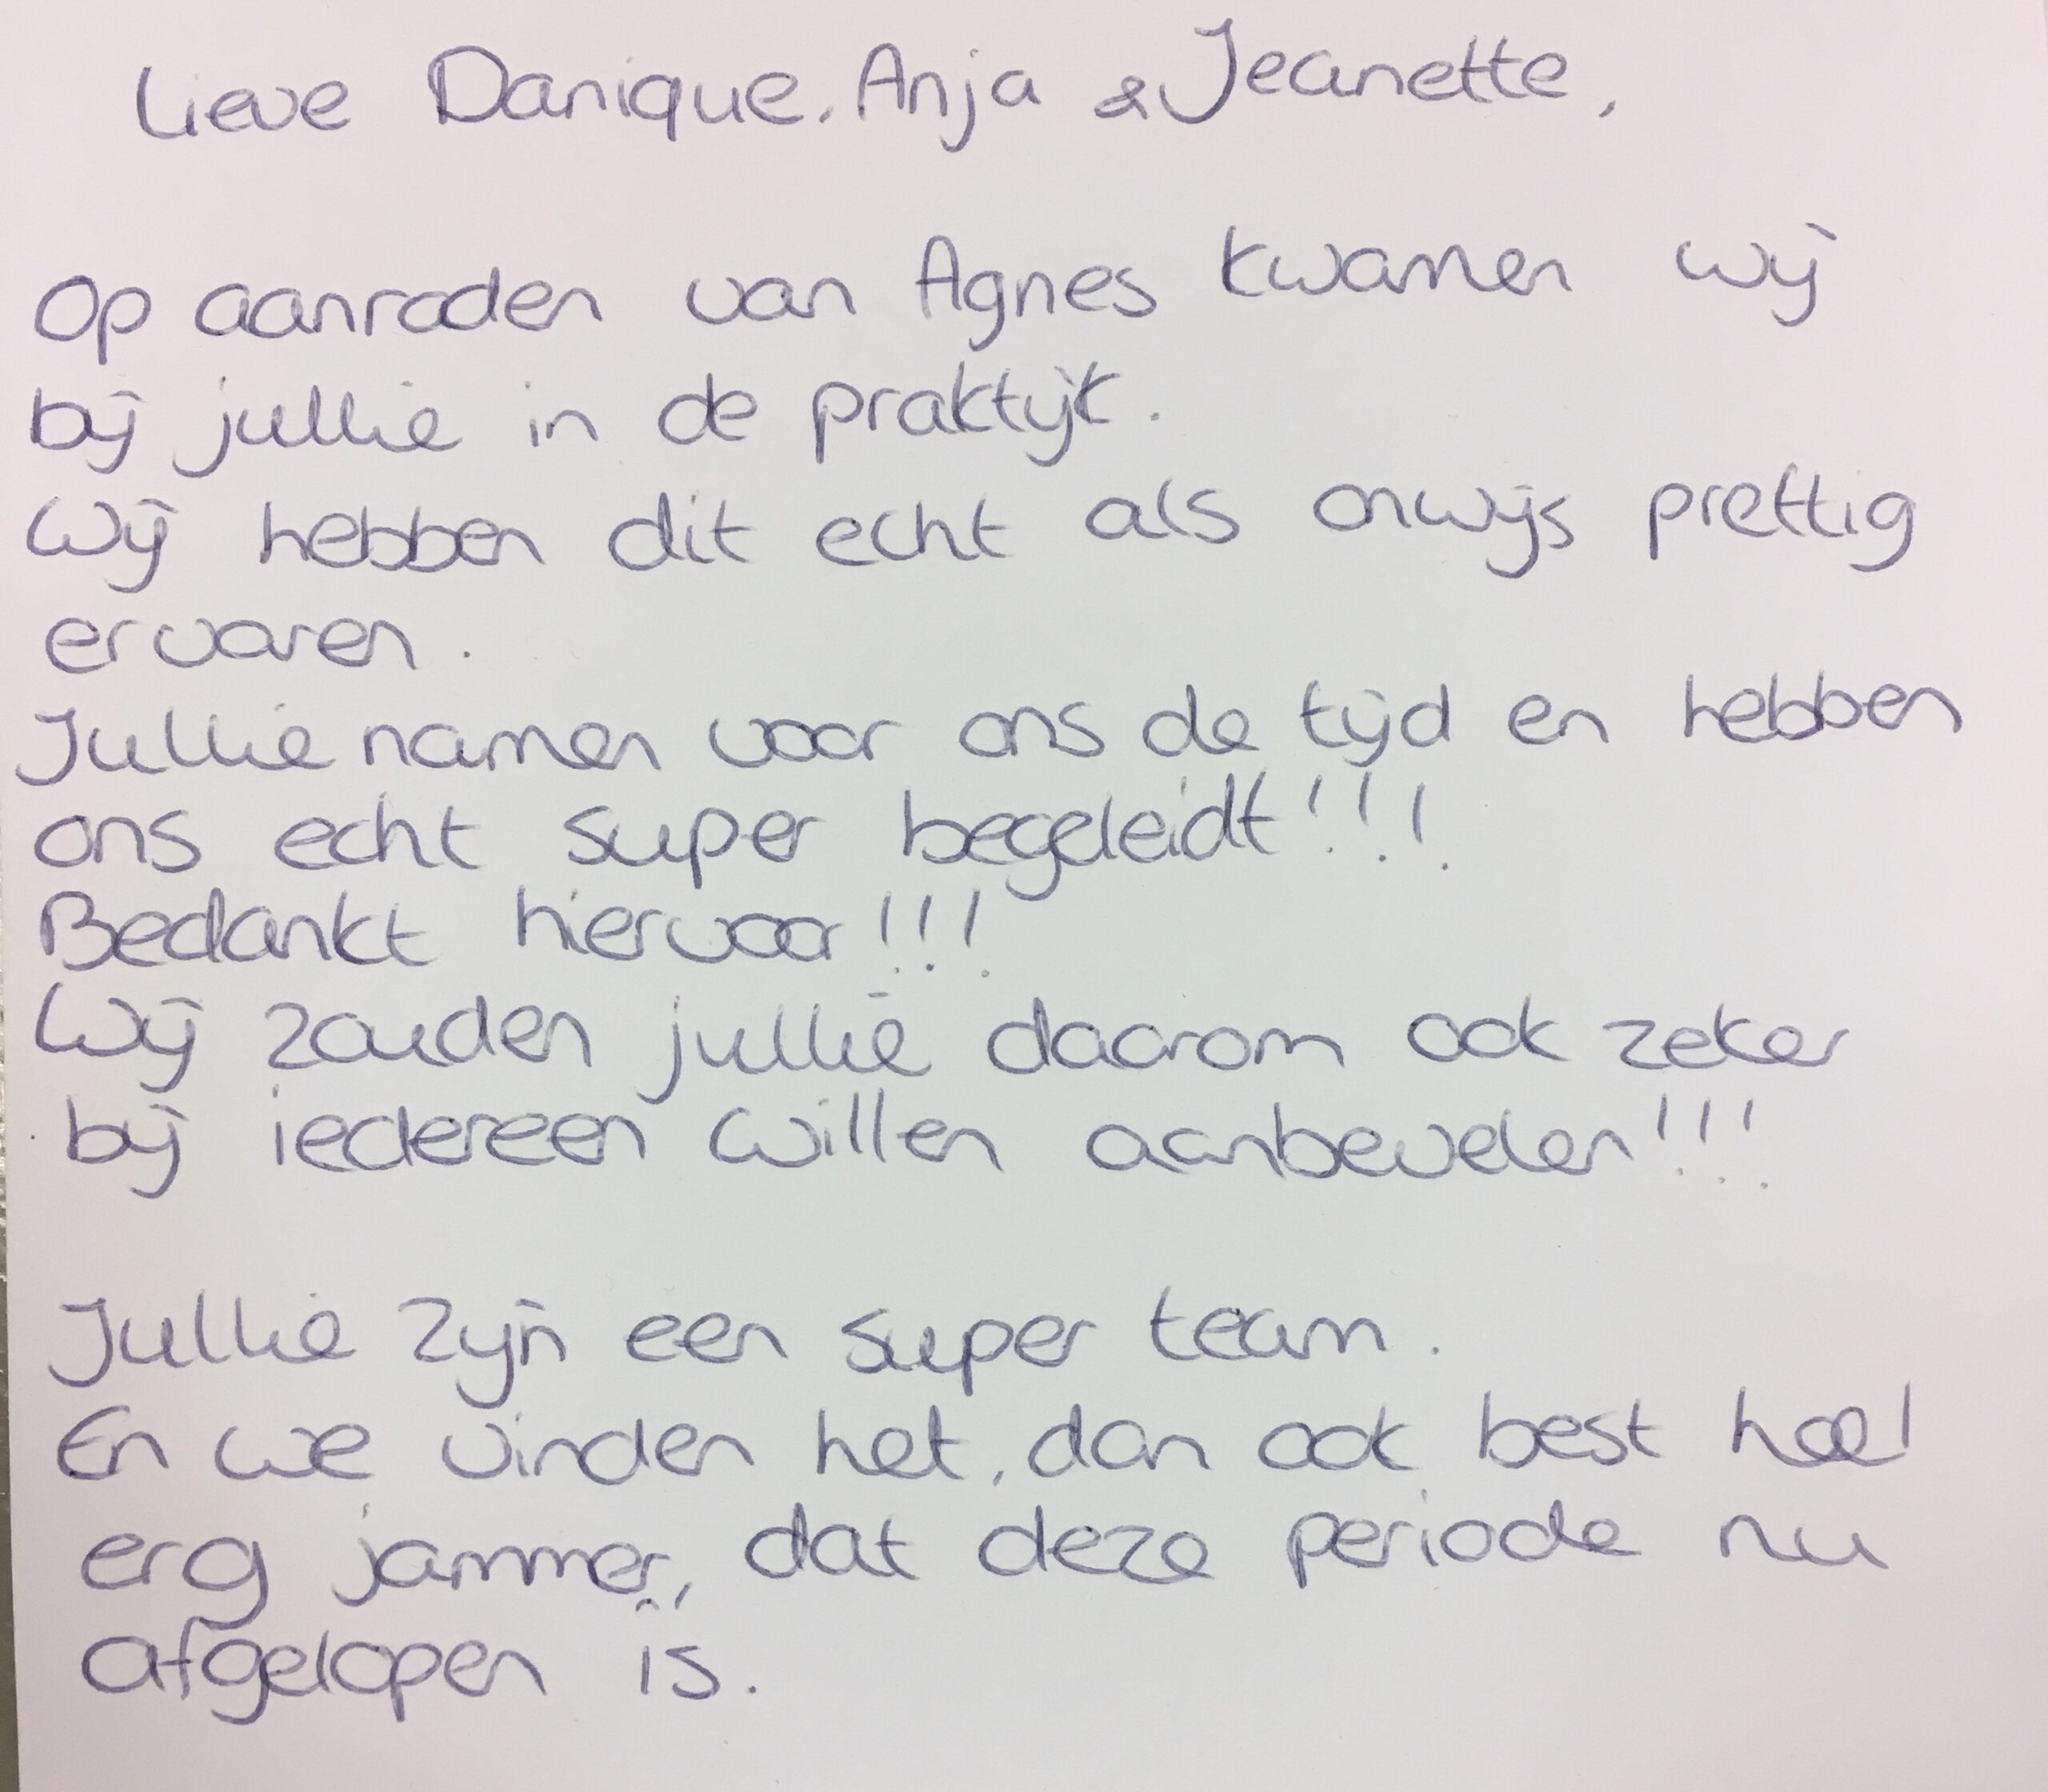 Lieve Danique, Anja & Jeanette,
Op aanraden van Agnes kwamen wij
bij jullie in de praktijk.
Wij hebben dit echt als onwijs prettig
ervaren.
Jullie namen voor ons de tijd en hebben
ons echt super begeleidt!!!
Bedankt hiervoor!!!
Wij zouden jullie daarom ook zeker
bij iedereen willen aanbevelen!!!
Jullie zijn een super team.
En we vinden het, dan ook best heel
erg jammer, dat deze periode nu
afgelopen is.